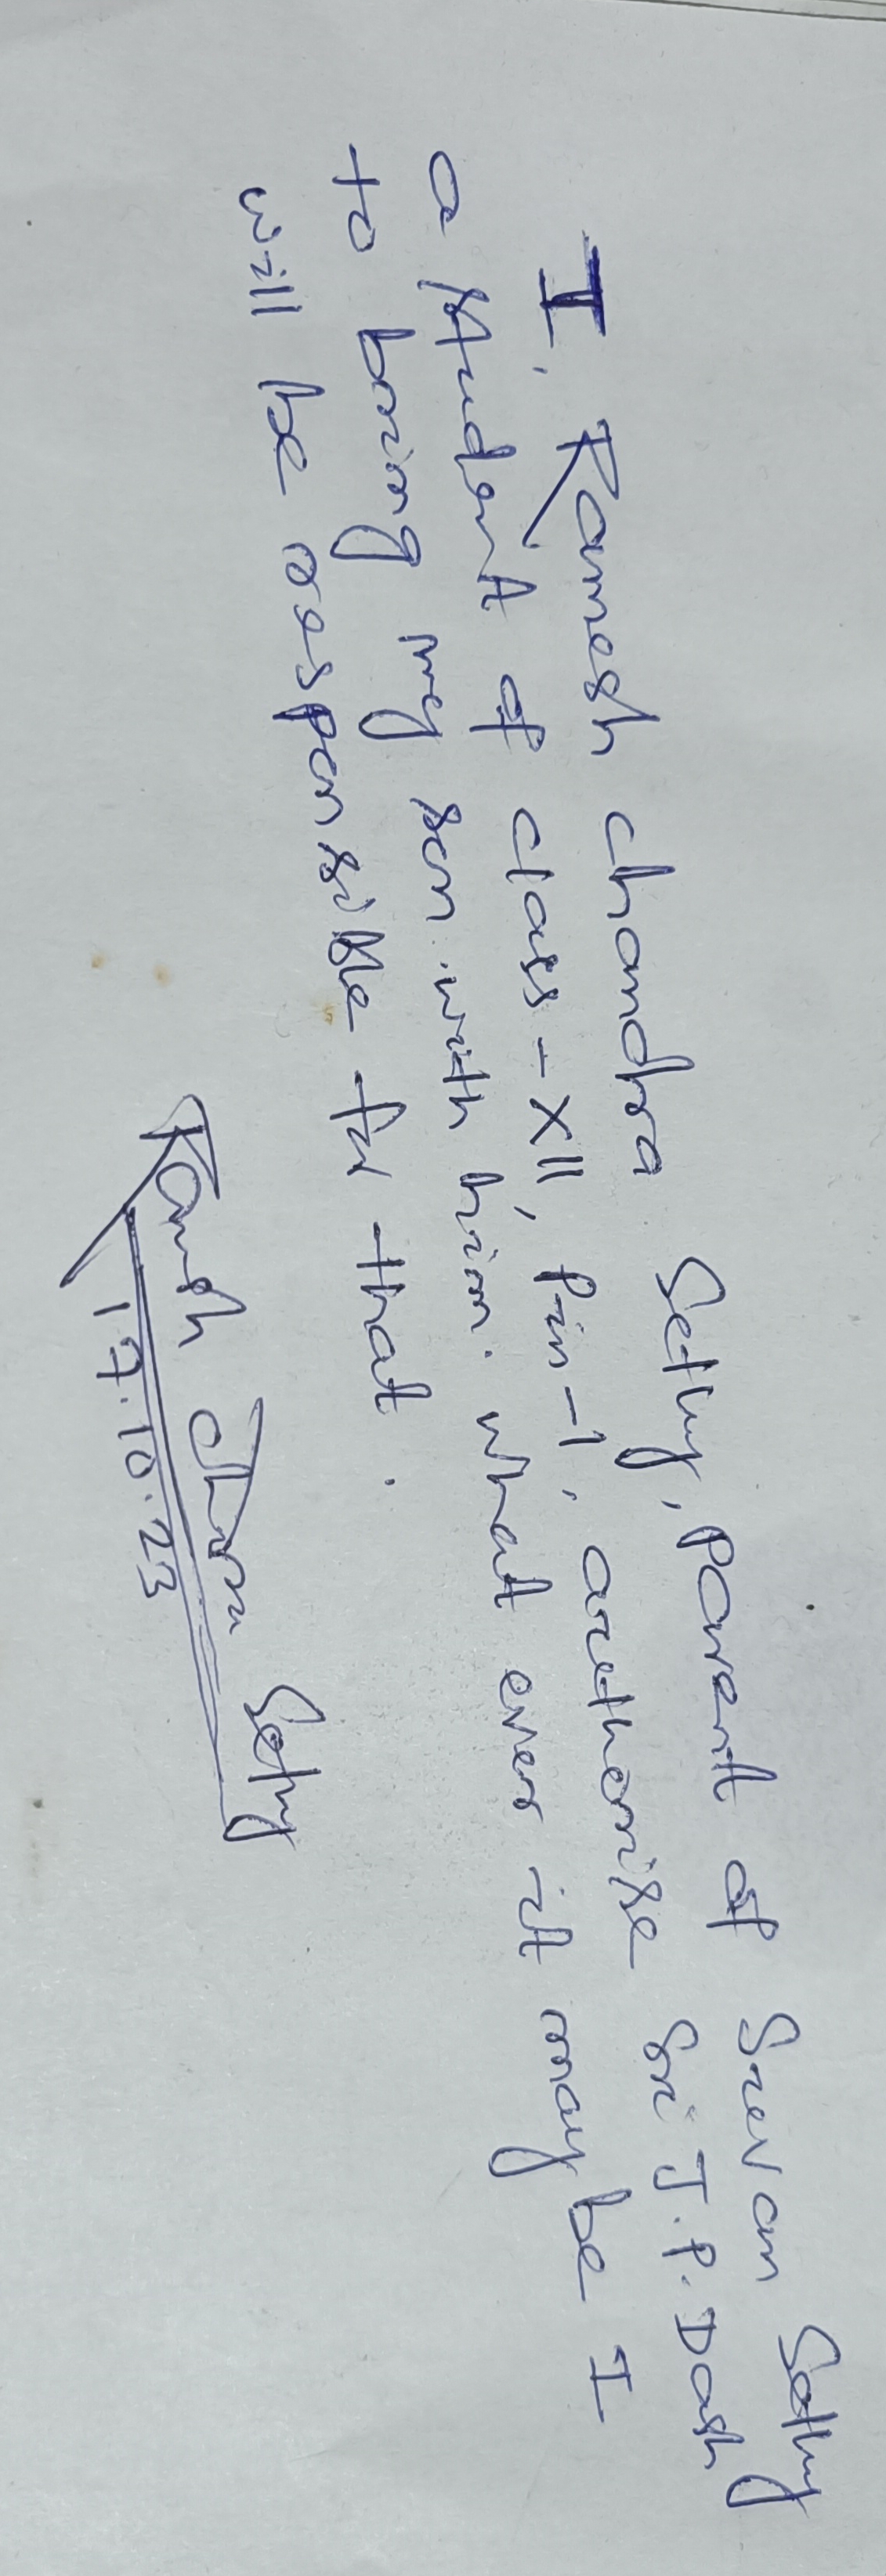 I, Ramesh chandra Sethy, parent of Sievan Sethy
a student of class-XII, Pin-1, authorise Sri J.P. Dash
to bring my son with him. what ever it may be I
will be responsible for that.
Ramesh Chara Sethy
17.10.23